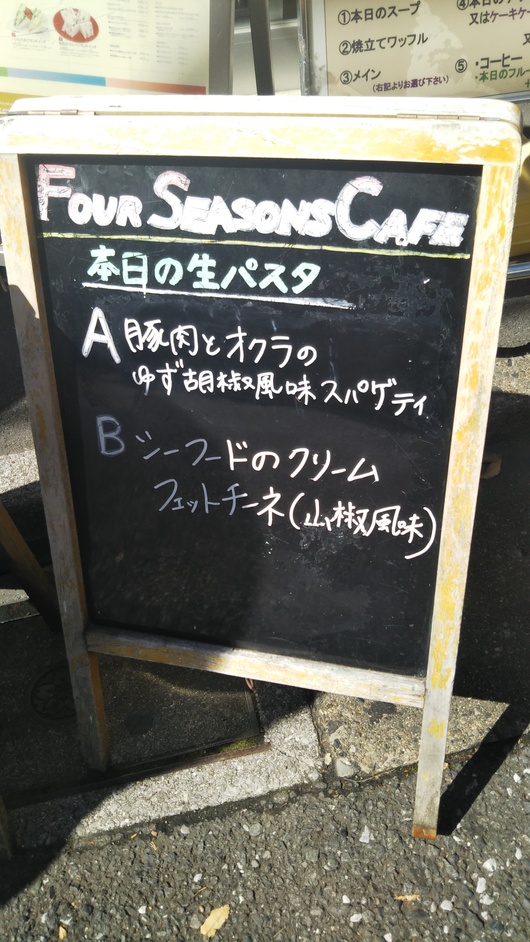 ①本日のスープ
②焼立てワッフル
③メイン
(右記よりお選び下さい)
又はケーキケー
⑤・コーヒー
・本日のフルー
FOUR SEASONS CAFE
本日の生パスタ
A 豚肉とオクラの
ゆず胡椒風味スパゲティ
B シーフードのクリーム
フェットチーネ(山椒風味)